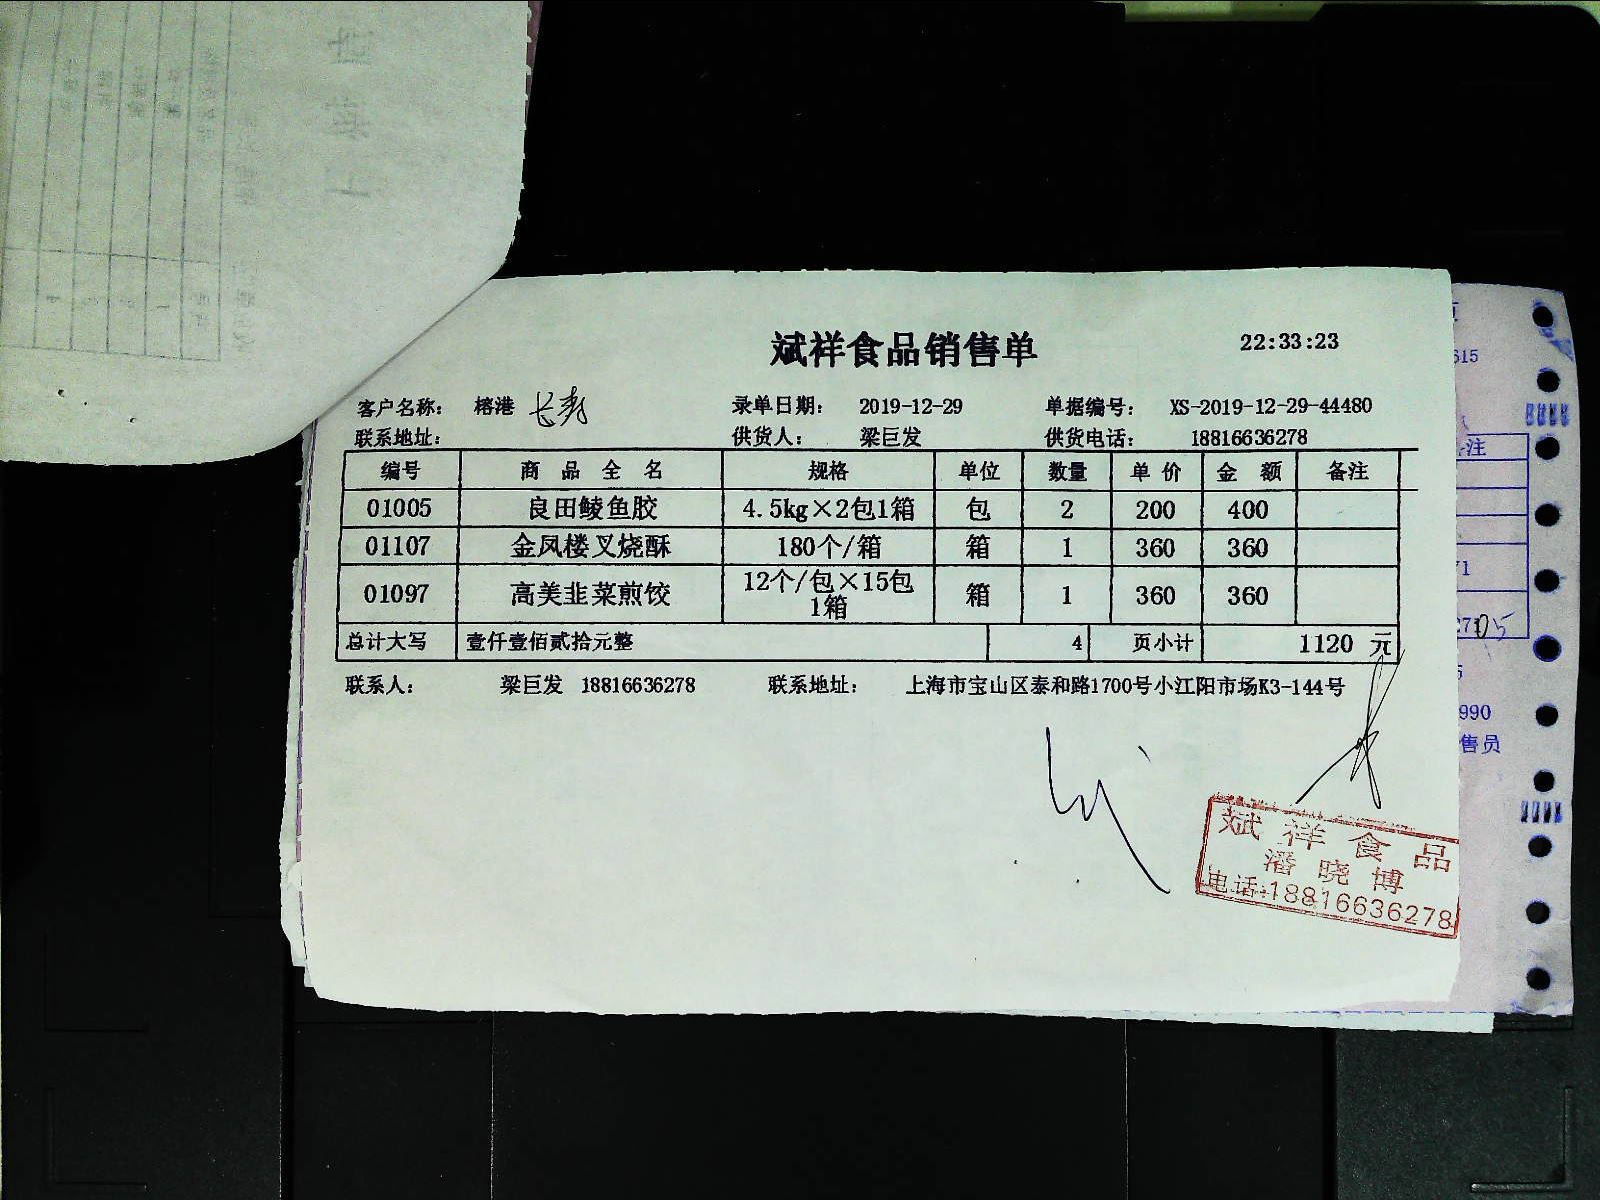 斌祥食品销售单 22:33:23
客户名称: 榕港 长寿 录单日期: 2019-12-29 单据编号: XS-2019-12-29-44480
联系地址: 供货人: 梁巨发 供货电话: 18816636278
编号 商品全名 规格 单位 数量 单价 金额 备注
01005 良田鲮鱼胶 4.5kg×2包1箱 包 2 200 400
01107 金凤楼叉烧酥 180个/箱 箱 1 360 360
01097 高美韭菜煎饺 12个/包×15包1箱 箱 1 360 360
总计大写 壹仟壹佰贰拾元整 4 页小计 1120 元
联系人: 梁巨发 18816636278 联系地址: 上海市宝山区泰和路1700号小江阳市场K3-144号
斌祥食品
潘晓博
电话:18816636278
615
注
990
售员